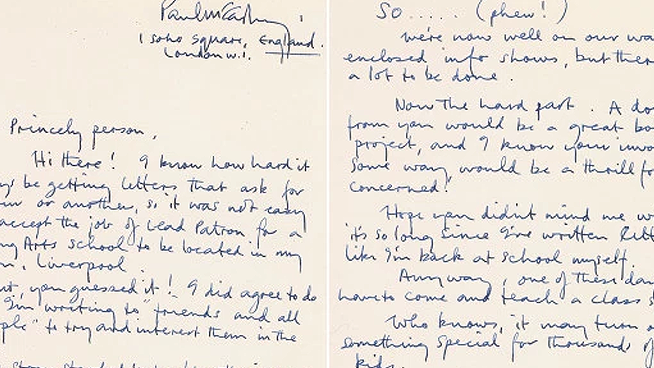 Paul McCartney,
1 Soho Square, England.
London W.1.
Princely person,
Hi there! I know how hard it
ys be getting letters that ask for
or another, so it was not easy
accept the job of Lead Patron for a
ng Arts School to be located in my
n, Liverpool.
ut, you guessed it! I did agree to do
I'm writing to "friends and all
ple" to try and interest them in the
SO ..... (phew!)
we're now well on our wa
enclosed info shows, but ther
a lot to be done.
Now the hard part. A do
from you would be a great bo
project, and I know your invo
some way, would be a thrill f
concerned!
Hope you didn't mind me w
it's so long since I've written lett
like I'm back at school myself.
Anyway, one of these da
have to come and teach a class
Who knows, it may turn o
something special for thousands of
kids.